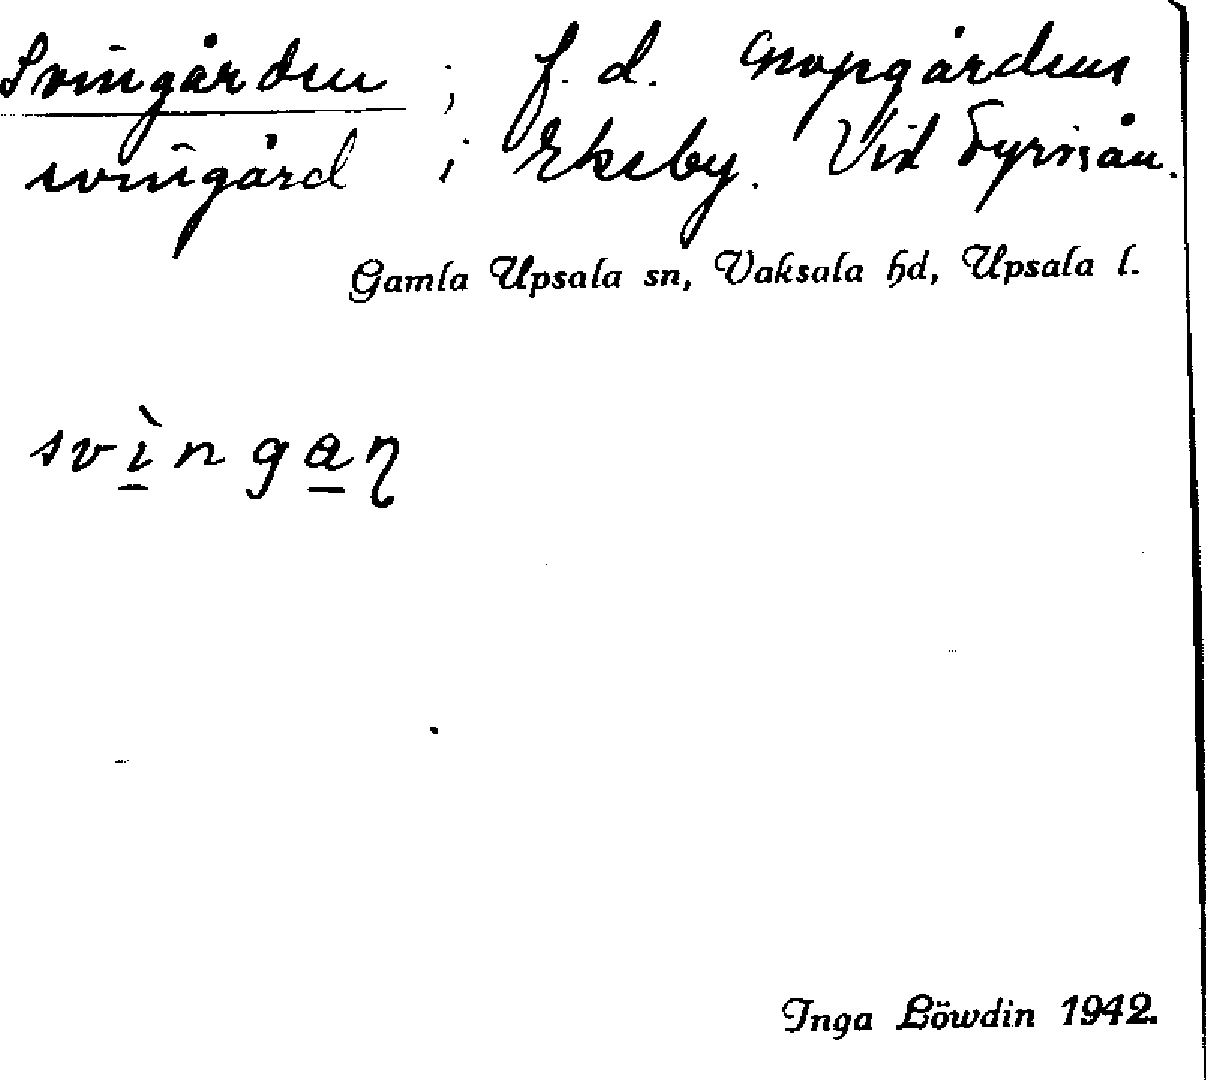 Svingården ; f. d. Mopgårdens
svingård i Eksby. Vid Fyrisån.
Gamla Upsala sn, Vaksala hd, Upsala l.
svìngaη
Inga Löwdin 1942.